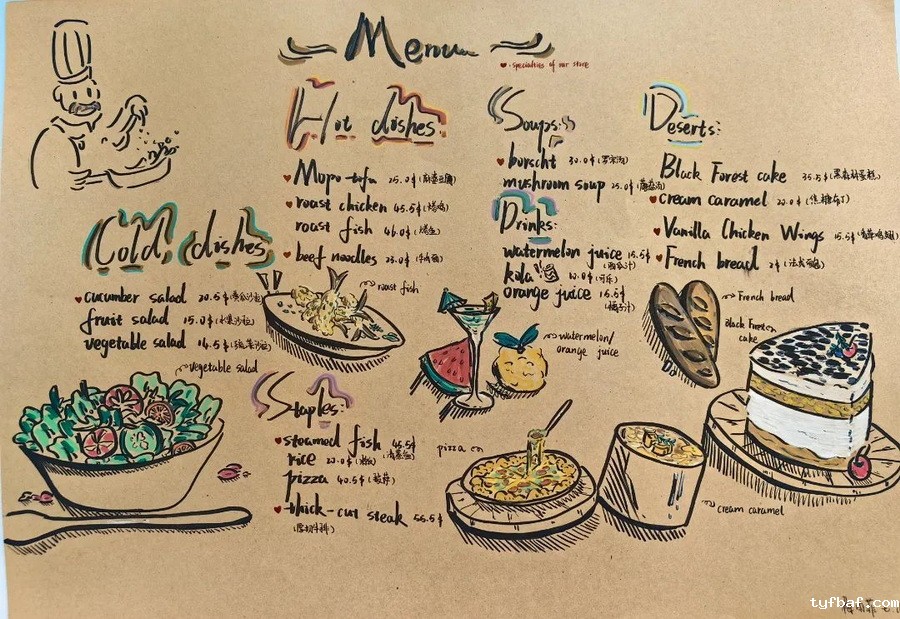 Menu
♥ : specialties of our store
Hot dishes:
♥ Mapo-tofu 25.0$ (麻婆豆腐)
♥ roast chicken 45.5$ (烤鸡)
roast fish 46.0$ (烤鱼)
♥ beef noodles 23.0$ (牛肉面)
roast fish
Cold dishes
♥ cucumber salad 20.5$ (黄瓜沙拉)
fruit salad 15.0$ (水果沙拉)
vegetable salad 14.5$ (蔬菜沙拉)
vegetable salad
Staples:
♥ steamed fish 45.5$
(清蒸鱼)
rice 20.0$ (米饭)
pizza 40.5$ (披萨)
♥ thick-cut steak 55.5$
(厚切牛排)
Soups:
♥ borscht 30.0$ (罗宋汤)
mushroom soup 25.0$ (蘑菇汤)
Drinks:
watermelon juice 15.5$
(西瓜汁)
kola 10.0$ (可乐)
orange juice 15.5$
(橘子汁)
watermelon/
orange juice
pizza
Deserts:
Black Forest cake 35.5$ (黑森林蛋糕)
♥ cream caramel 20.0$ (焦糖布丁)
♥ Vanilla Chicken Wings 15.5$
♥ French bread 2$
French bread
Black Forest
cake
cream caramel
tyfbaf.com